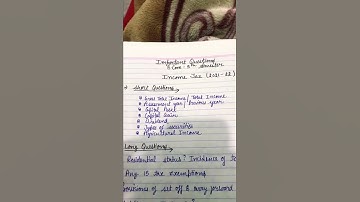 Important Questions
B.Com - 5th Semester
Income Tax (2021-22)
Short Questions
Gross Total Income / Total Income
Assessment year / Previous year
Capital Asset
Capital Gain
Dividend
Types of securities
Agricultural Income
Long Questions
Residential status? Incidence of
Any 15 tax exemptions
of set off & carry forward